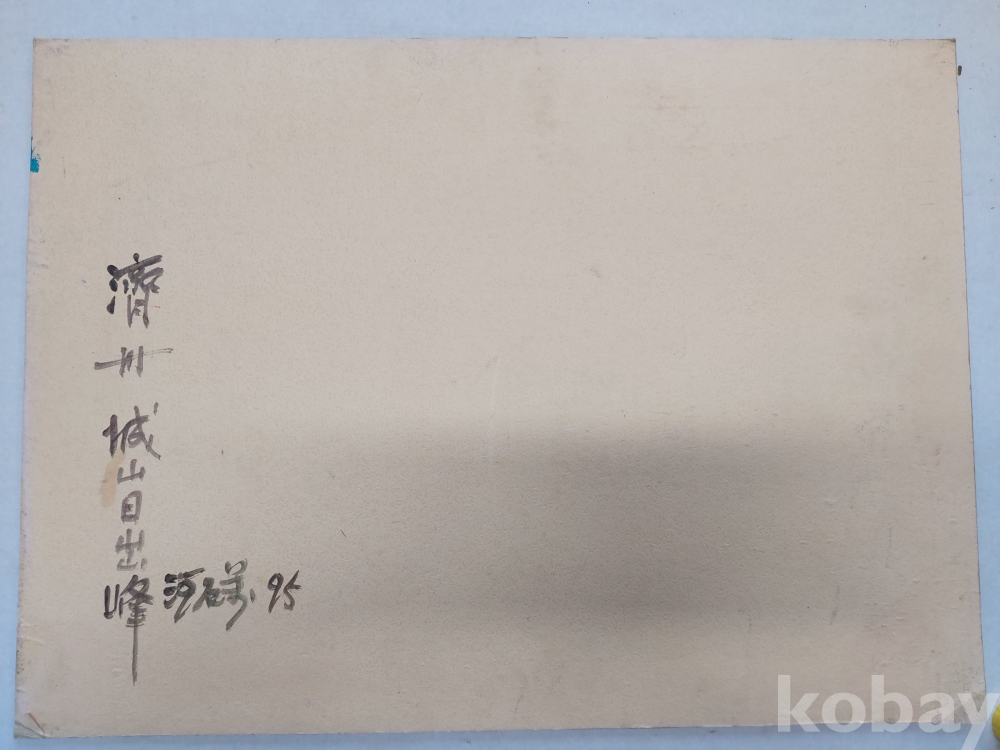 濟州城山日出峰
河石 95
kobay